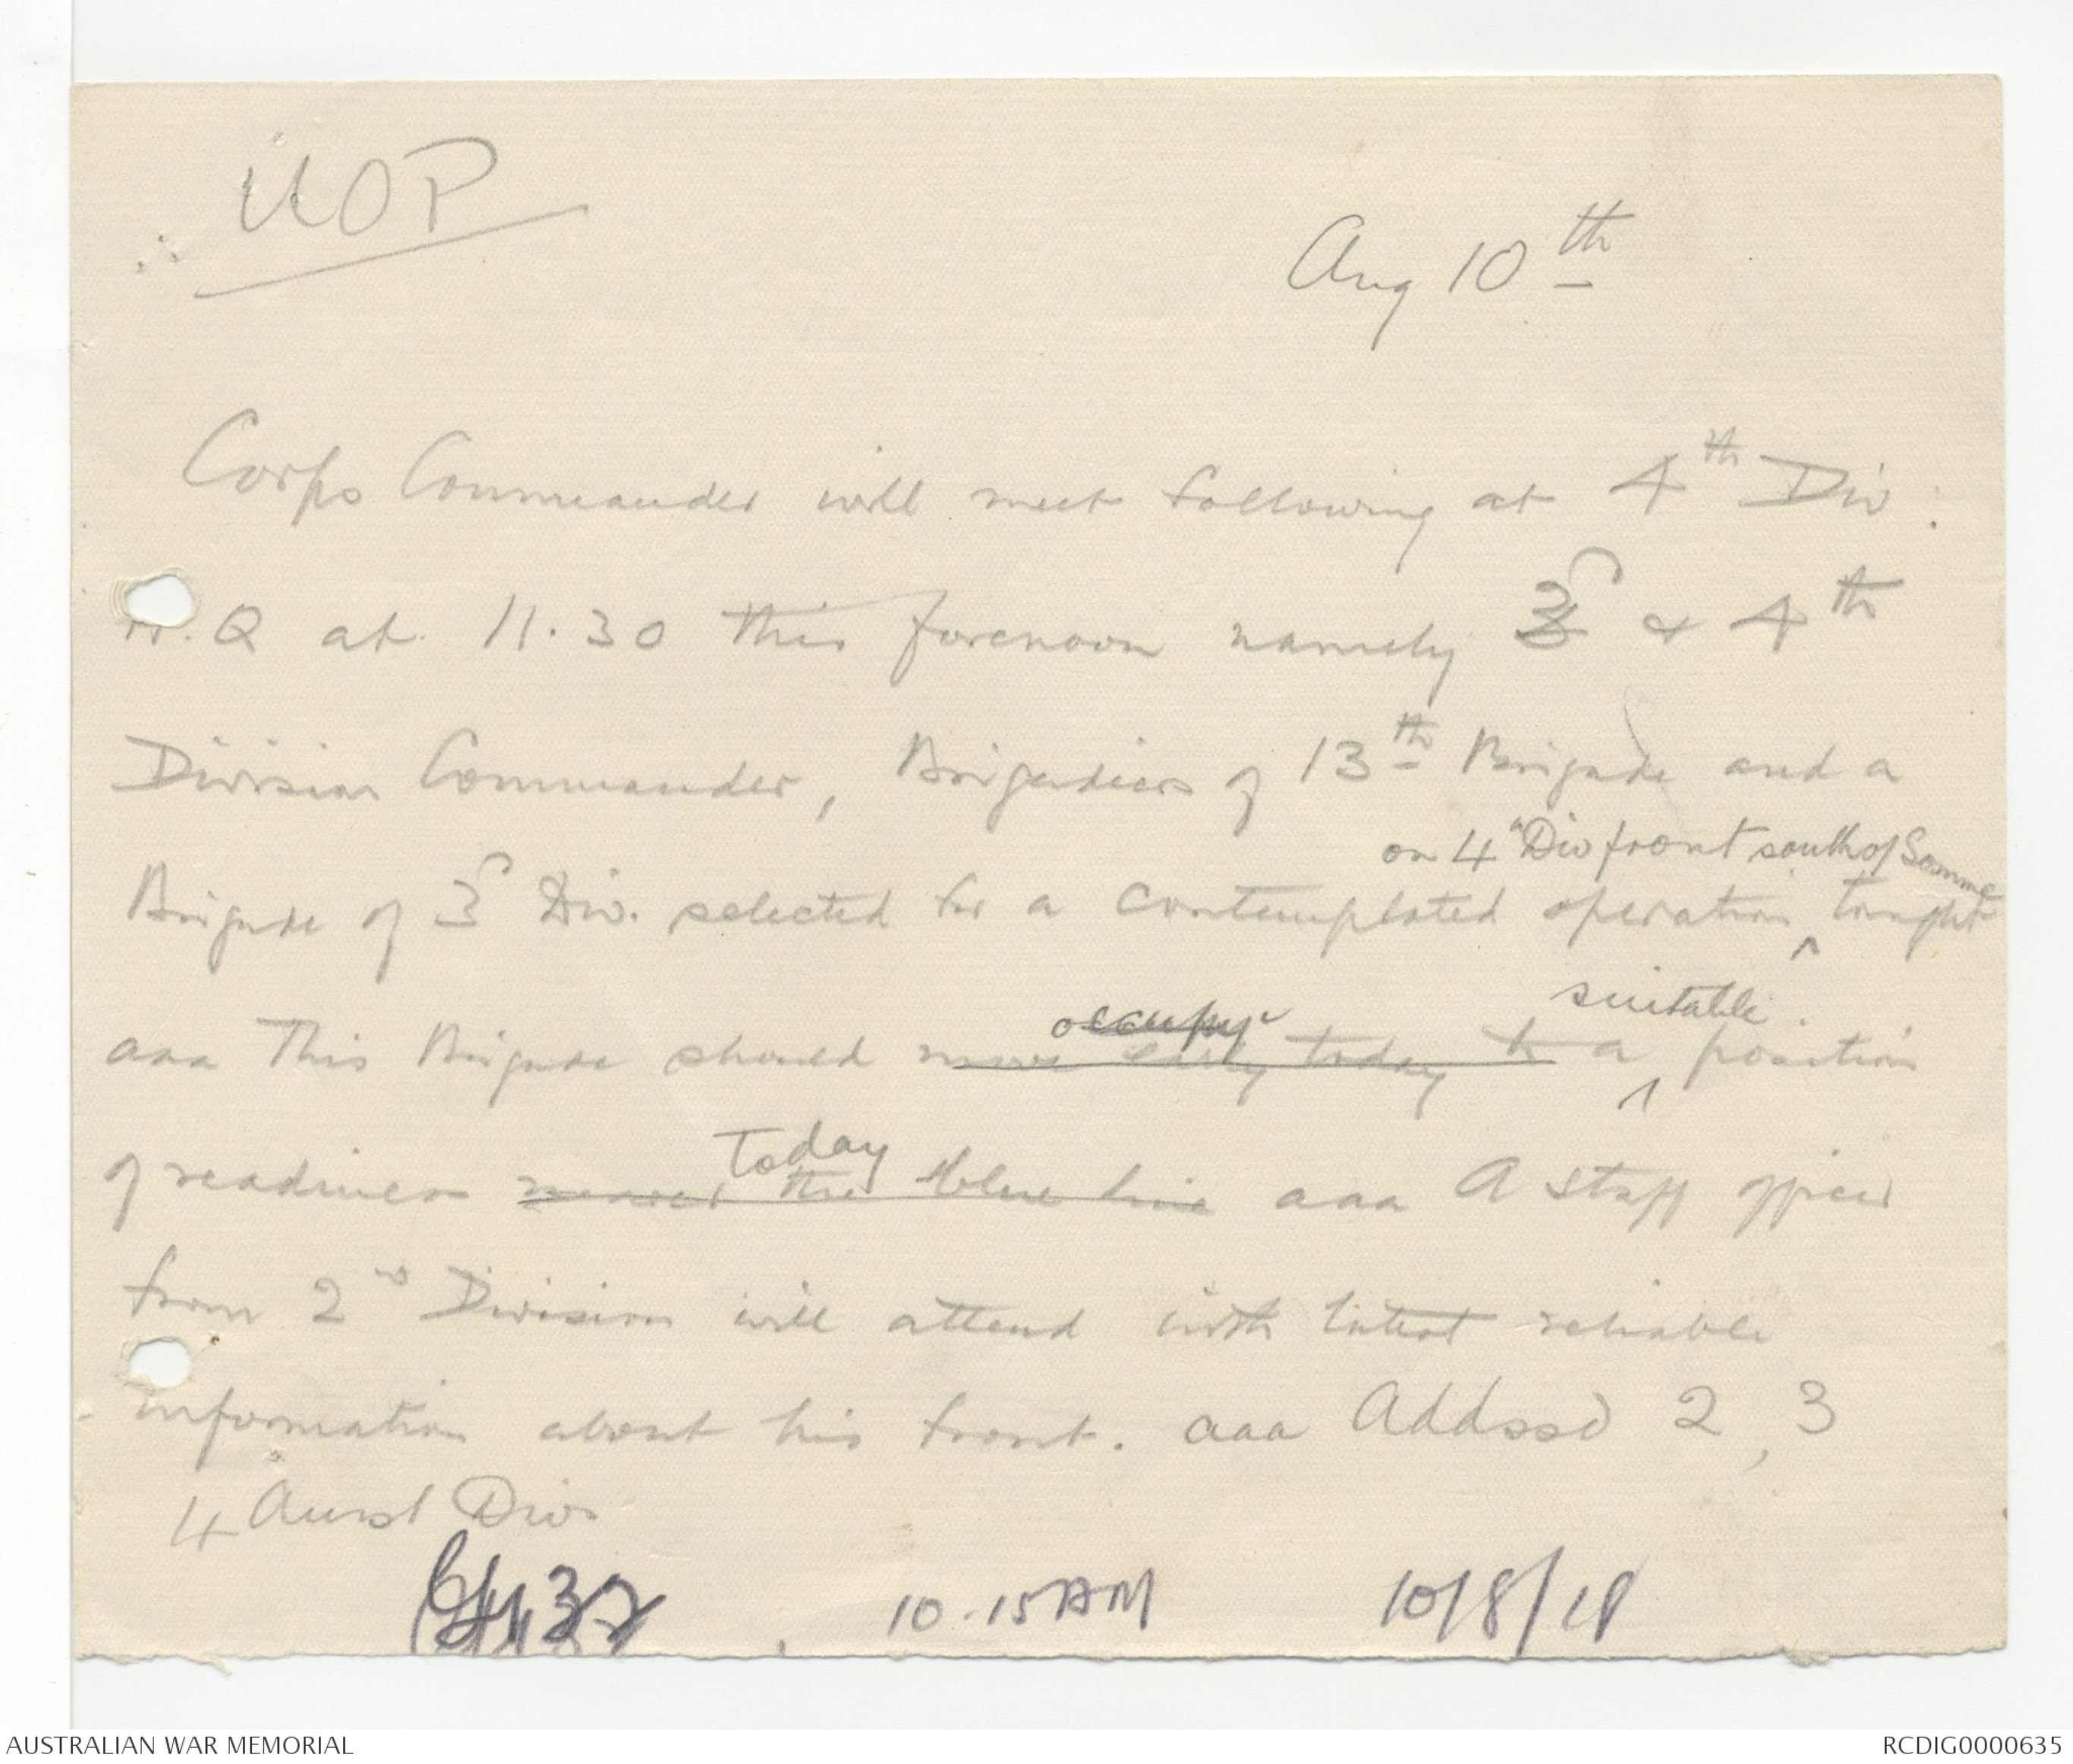 UOP
Aug 10th
Corps Commander will meet following at 4th Div:
H.Q at 11.30 this forenoon namely 3d & 4th
Division Commander, Brigadiers of 13th Brigade and a
on 4th Div front south of Somme
Brigade of 3d Div. selected for a contemplated operation ^ tonight
occupy suitable
aaa This Brigade should move early today to a ^ position
Today
of readiness nearer the blue line aaa A staff officer
from 2nd Division will attend with latest reliable
information about his front. aaa Addssd 2, 3
4 Aust Divs
10.15 AM 10/8/18
AUSTRALIAN WAR MEMORIAL
RCDIG0000635